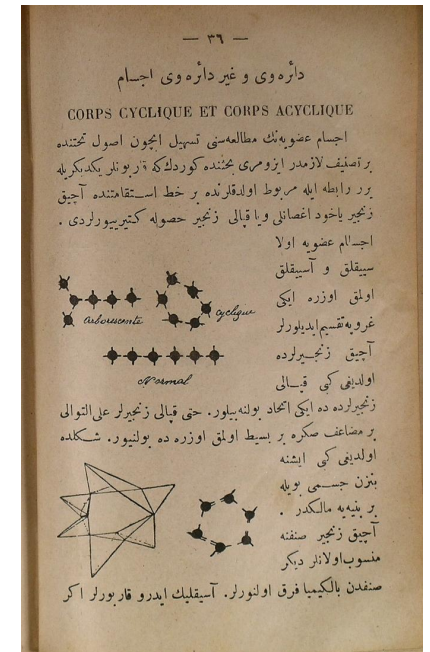 — ٣٦ —
دائره‌وی و غیر دائره‌وی اجسام
CORPS CYCLIQUE ET CORPS ACYCLIQUE
اجسام عضویه‌نك مطالعه‌سنی تسهیل ایچون اصول تحتنده
بر تصنیف لازمدر ایزومری بحثنده كوردك كه قاربونلر یكدیكریله
برر رابطه ایله مربوط اولدقلرنده بر خط استقامتنده آچیق
زنجیر یاخود اغصانلی ویا قپالی زنجیر حصوله كتیرییورلردی .
اجسام عضویه اولا
سیقلق و آسیقلق
اولمق اوزره ایكی
غروپه تقسیم ایدیلورلر
آچیق زنجیرلرده
اولدیغی كبی قپالی
arborescente
cyclique
Normal
زنجیرلرده ده ایكی اتحاد بولنه‌بیلور. حتی قپالی زنجیرلر علی‌التوالی
بر مضاعف صكره بر بسیط اولمق اوزره ده بولنیور. شكلده
اولدیغی كبی ایشته
بنزن جسمی بویله
بر بنیه‌یه مالكدر .
آچیق زنجیر صنفنه
منسوب اولانلر دیكر
صنفدن بالكیمیا فرق اولنورلر. آسیقلیك ایدرو قاربورلر اكر